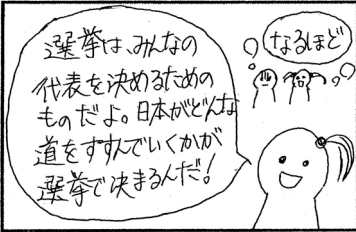 選挙は、みんなの
代表を決めるための
ものだよ。日本がどんな
道をすすんでいくかが
選挙で決まるんだ!
なるほど